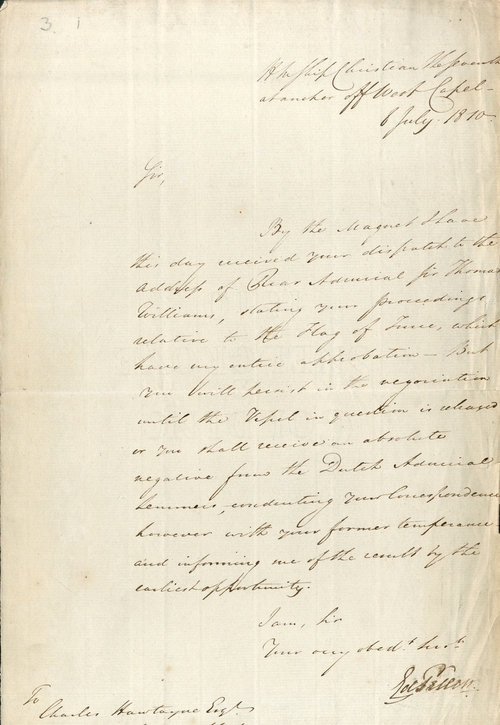 3 1
H M Ship Christian the Seventh
at anchor off West Capel -
6 July. 1810
Sir,
By the Magnet I have
this day received your dispatch to the
Address of Rear Admiral Sir Thomas
Williams, stating your proceedings
relative to the Flag of Truce, which
have my entire approbation - But
you will persist in the negociation
until the Vessel in question is released
or you shall receive an absolute
negative from the Dutch Admiral
Lemmers, conducting your Correspondence
however with your former temperance
and informing me of the result by the
earliest opportunity.
I am, Sir
Your very obedt. Servt.
To
Charles Hawtayne Esqr.